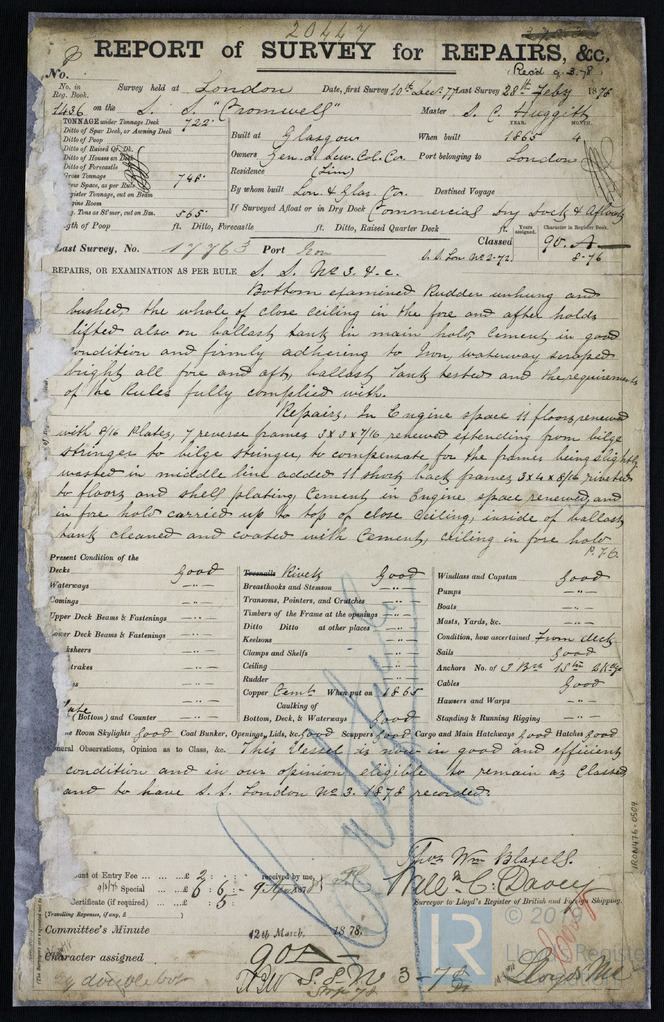 20447
REPORT of SURVEY for REPAIRS, &c.
Rec'd 9.3.78
No.
No. in Reg. Book. Survey held at London Date, first Survey 10th Dec. 77 Last Survey 28th Feby 1878
1436 on the S. S. "Cromwell" Master S. C. Huggitt
TONNAGE under Tonnage Deck 722
Ditto of Spar Deck, or Awning Deck
Ditto of Poop
Ditto of Raised Qr. Dk.
Ditto of Houses on Deck
Ditto of Forecastle
Gross Tonnage 748
Space, as per Rule
Register Tonnage, cut on Beam
Engine Room
Reg. Tons as St'mer, cut on Bm. 565
Built at Glasgow When built YEAR. 1865 MONTH. 4
Owners Gen. I. Scw. Col. Co. Port belonging to London
Residence (Lim)
By whom built Lon. & Glas. Co. Destined Voyage
If Surveyed Afloat or in Dry Dock Commercial Dry Dock & Afloat
Length of Poop ft. Ditto, Forecastle ft. Ditto, Raised Quarter Deck ft.
Years assigned. Character in Register Book.
Last Survey, No. 17763 Port Lon Classed 90. A
S.S. Lon No 2-72 8-76
REPAIRS, OR EXAMINATION AS PER RULE S. S. No 3. & c.
Bottom examined Rudder unhung and
bushed, the whole of close ceiling in the fore and after holds
lifted also on ballast tank in main hold, cement in good
condition and firmly adhering to Iron, waterway scraped
bright all fore and aft, ballast tank tested and the requirements
of the Rules fully complied with.
Repairs, In Engine space 11 floors renewed
with 8/16 Plates, 7 reverse frames 3 x 3 x 7/16 renewed extending from bilge
stringer to bilge stringer, to compensate for the frames being slightly
wasted in middle line added 11 short back frames 3 x 4 x 8/16 riveted
to floors and shell plating, Cement in Engine space renewed, and
in fore hold carried up to top of close ceiling, inside of ballast
tank cleaned and coated with cement, ceiling in fore hold
P. 76.
Present Condition of the
Decks good
Waterways
Comings
Upper Deck Beams & Fastenings
Lower Deck Beams & Fastenings
(Bottom) and Counter
Treenails Rivets good
Breasthooks and Stemson
Transoms, Pointers, and Crutches
Timbers of the Frame at the openings
Ditto Ditto at other places
Keelsons
Clamps and Shelfs
Ceiling
Rudder
Copper Cemt. When put on 1865
Caulking of
Bottom, Deck, & Waterways good
Windlass and Capstan good
Pumps
Boats
Masts, Yards, &c.
Condition, how ascertained From deck
Sails good
Anchors No. of 3 Brs 1 Stm 2 Kgs
Cables good
Hawsers and Warps
Standing & Running Rigging
Room Skylights good Coal Bunker, Openings, Lids, &c. good Scuppers good Cargo and Main Hatchways good Hatches good
General Observations, Opinion as to Class, &c. This Vessel is now in good and efficient
condition and in our opinion eligible to remain as Classed
and to have S. S. London No 3. 1878 recorded.
Thos Wm Blaxell.
Amount of Entry Fee ... £ 2 received by me,
Special ... £ 6 : 6 : 9 1878
Certificate (if required) ... £ 5
(Travelling Expenses, if any, £ )
Willm C. Davey
Surveyor to Lloyd's Register of British and Foreign Shipping.
Committee's Minute 12th March 1878.
Character assigned 90 A
S.S. No 3 - 78
IRON476-0504
LR
© 2019
Lloyd's Register